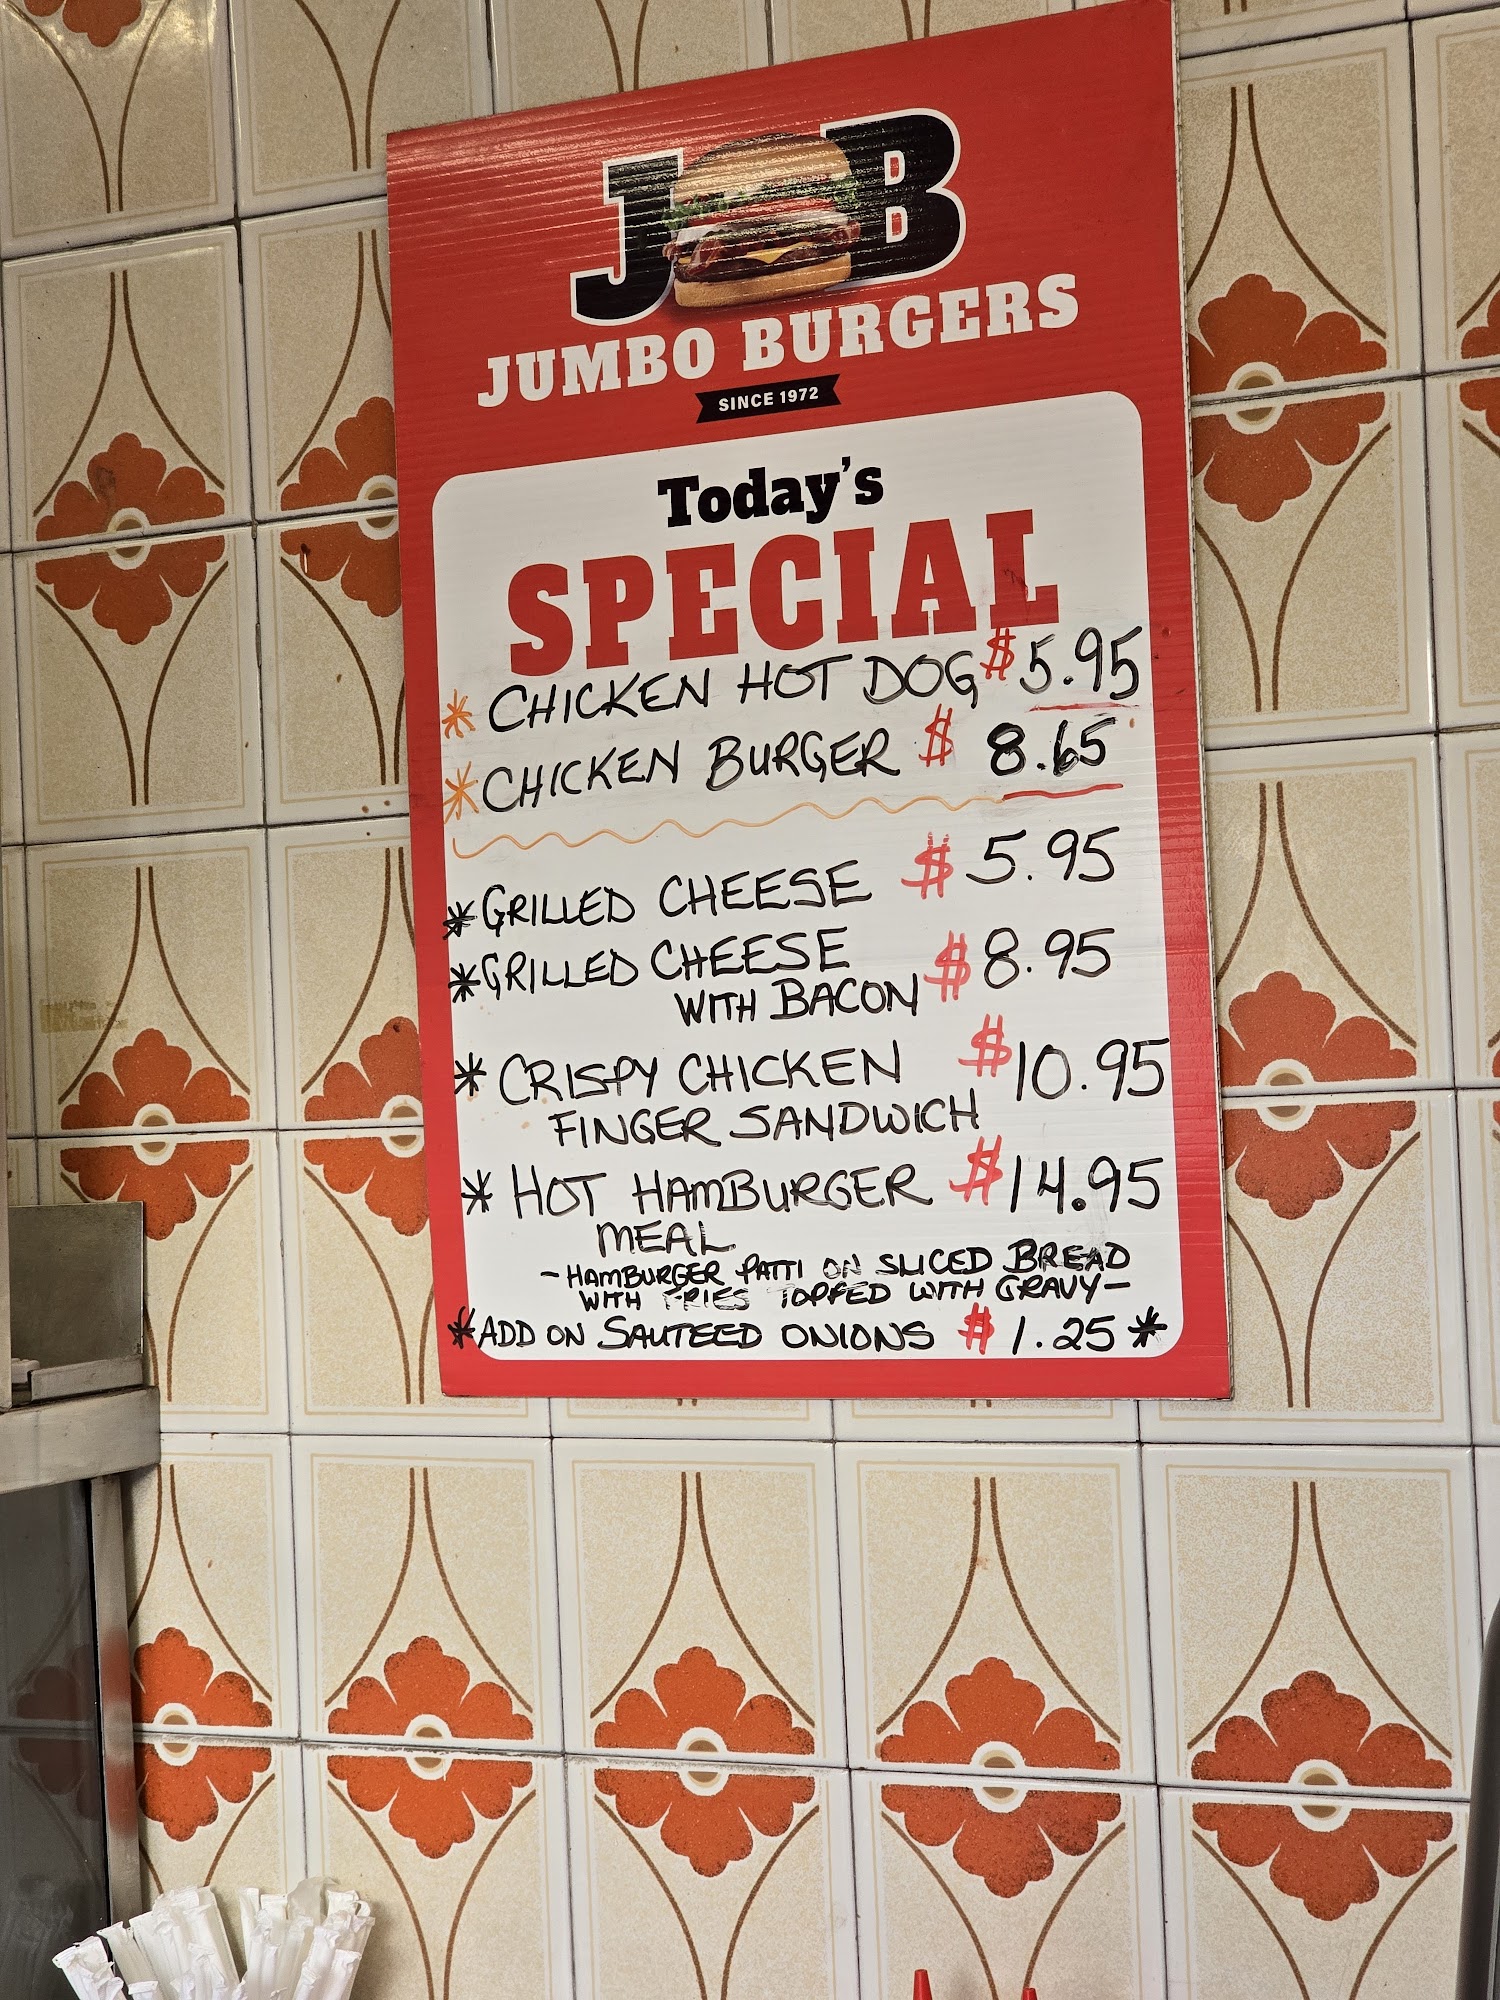 JB
JUMBO BURGERS
SINCE 1972
Today's
SPECIAL
* CHICKEN HOT DOG $ 5.95
* CHICKEN BURGER $ 8.65
* GRILLED CHEESE $ 5.95
* GRILLED CHEESE $ 8.95
WITH BACON
* CRISPY CHICKEN $ 10.95
FINGER SANDWICH
* HOT HAMBURGER $ 14.95
MEAL
- HAMBURGER PATTI ON SLICED BREAD
WITH FRIES TOPPED WITH GRAVY -
* ADD ON SAUTEED ONIONS $ 1.25 *